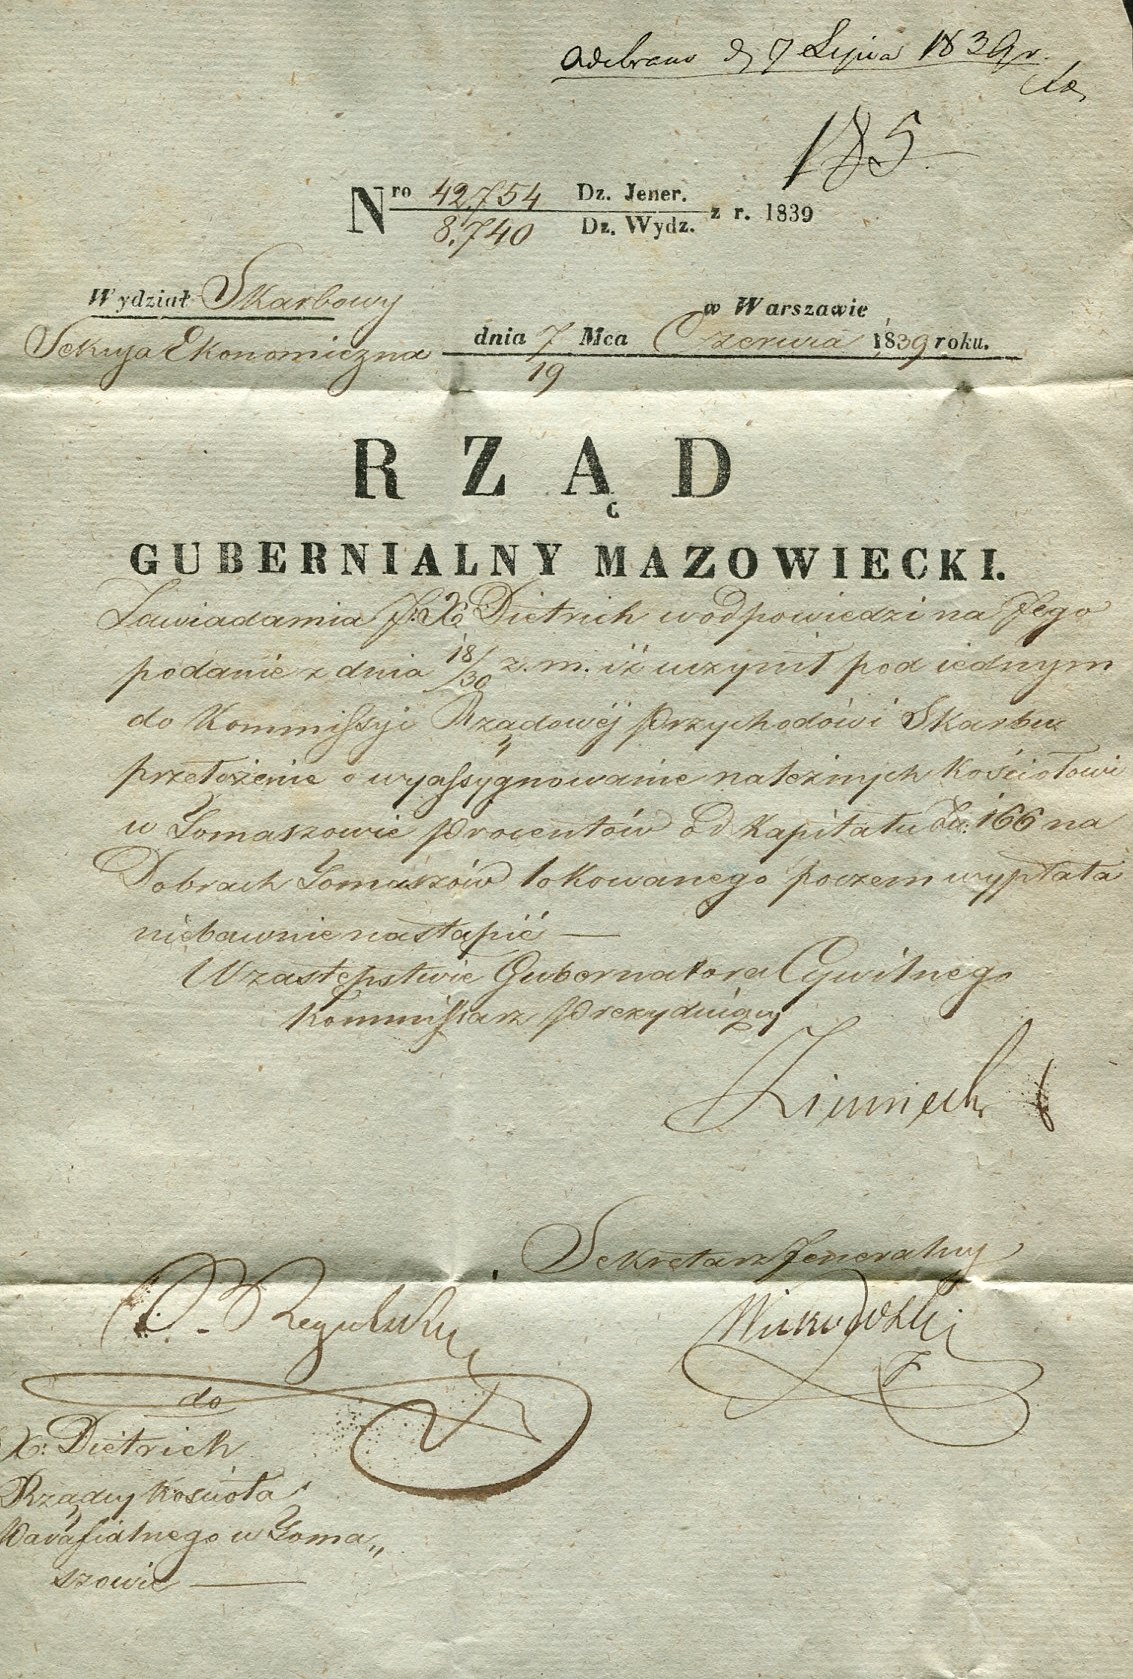 Odebrano d. 7 Lipca 1839 r.
185
Nro 42,754 Dz. Jener.
8,740 Dz. Wydz. z r. 1839
Wydział Skarbowy
Sekcyja Ekonomiczna
w Warszawie
dnia 7/19 Mca Czerwca 1839 roku.
RZĄD
GUBERNIALNY MAZOWIECKI.
Zawiadamia J. X. Dietrich w odpowiedzi na Jego
podanie z dnia 18/30 z. m. iż uczynił pod iednym
do Kommissyi Rządowéj Przychodów i Skarbu
przełożenie o wyassygnowanie należnych Kościołowi
w Tomaszowie Procentów od Kapitału 166 na
Dobrach Tomaszów lokowanego poczem wypłata
niebawnie nastąpić —
W zastępstwie Gubernatora Cywilnego
Kommissarz Prezydujący
Sekretarz Jeneralny
do
X. Dietrich
Rządcy Kościoła
Parafialnego w Toma„
szowie —